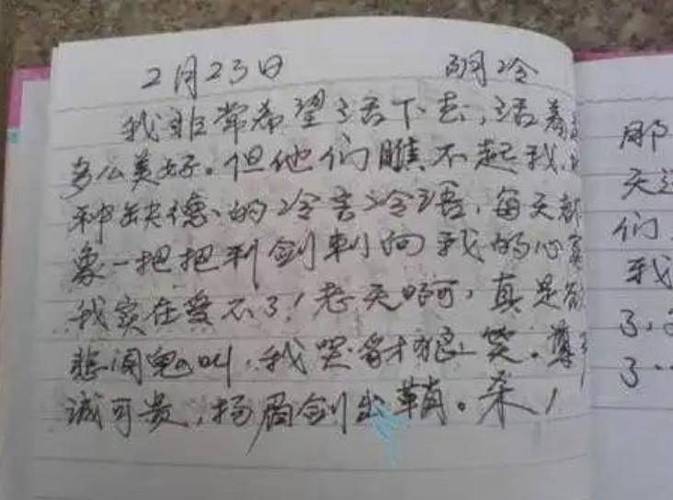 2月23日 阴冷
我非常希望活下去,活着
多么美好。但他们瞧不起我,
种缺德的冷言冷语,每天都
象一把把利剑刺向我的心窝
我实在受不了!老天啊,真是欲
悲闻鬼叫,我哭豺狼笑。尊
诚可贵,扬眉剑出鞘。杀!
那
天这
们
我
了,
了..